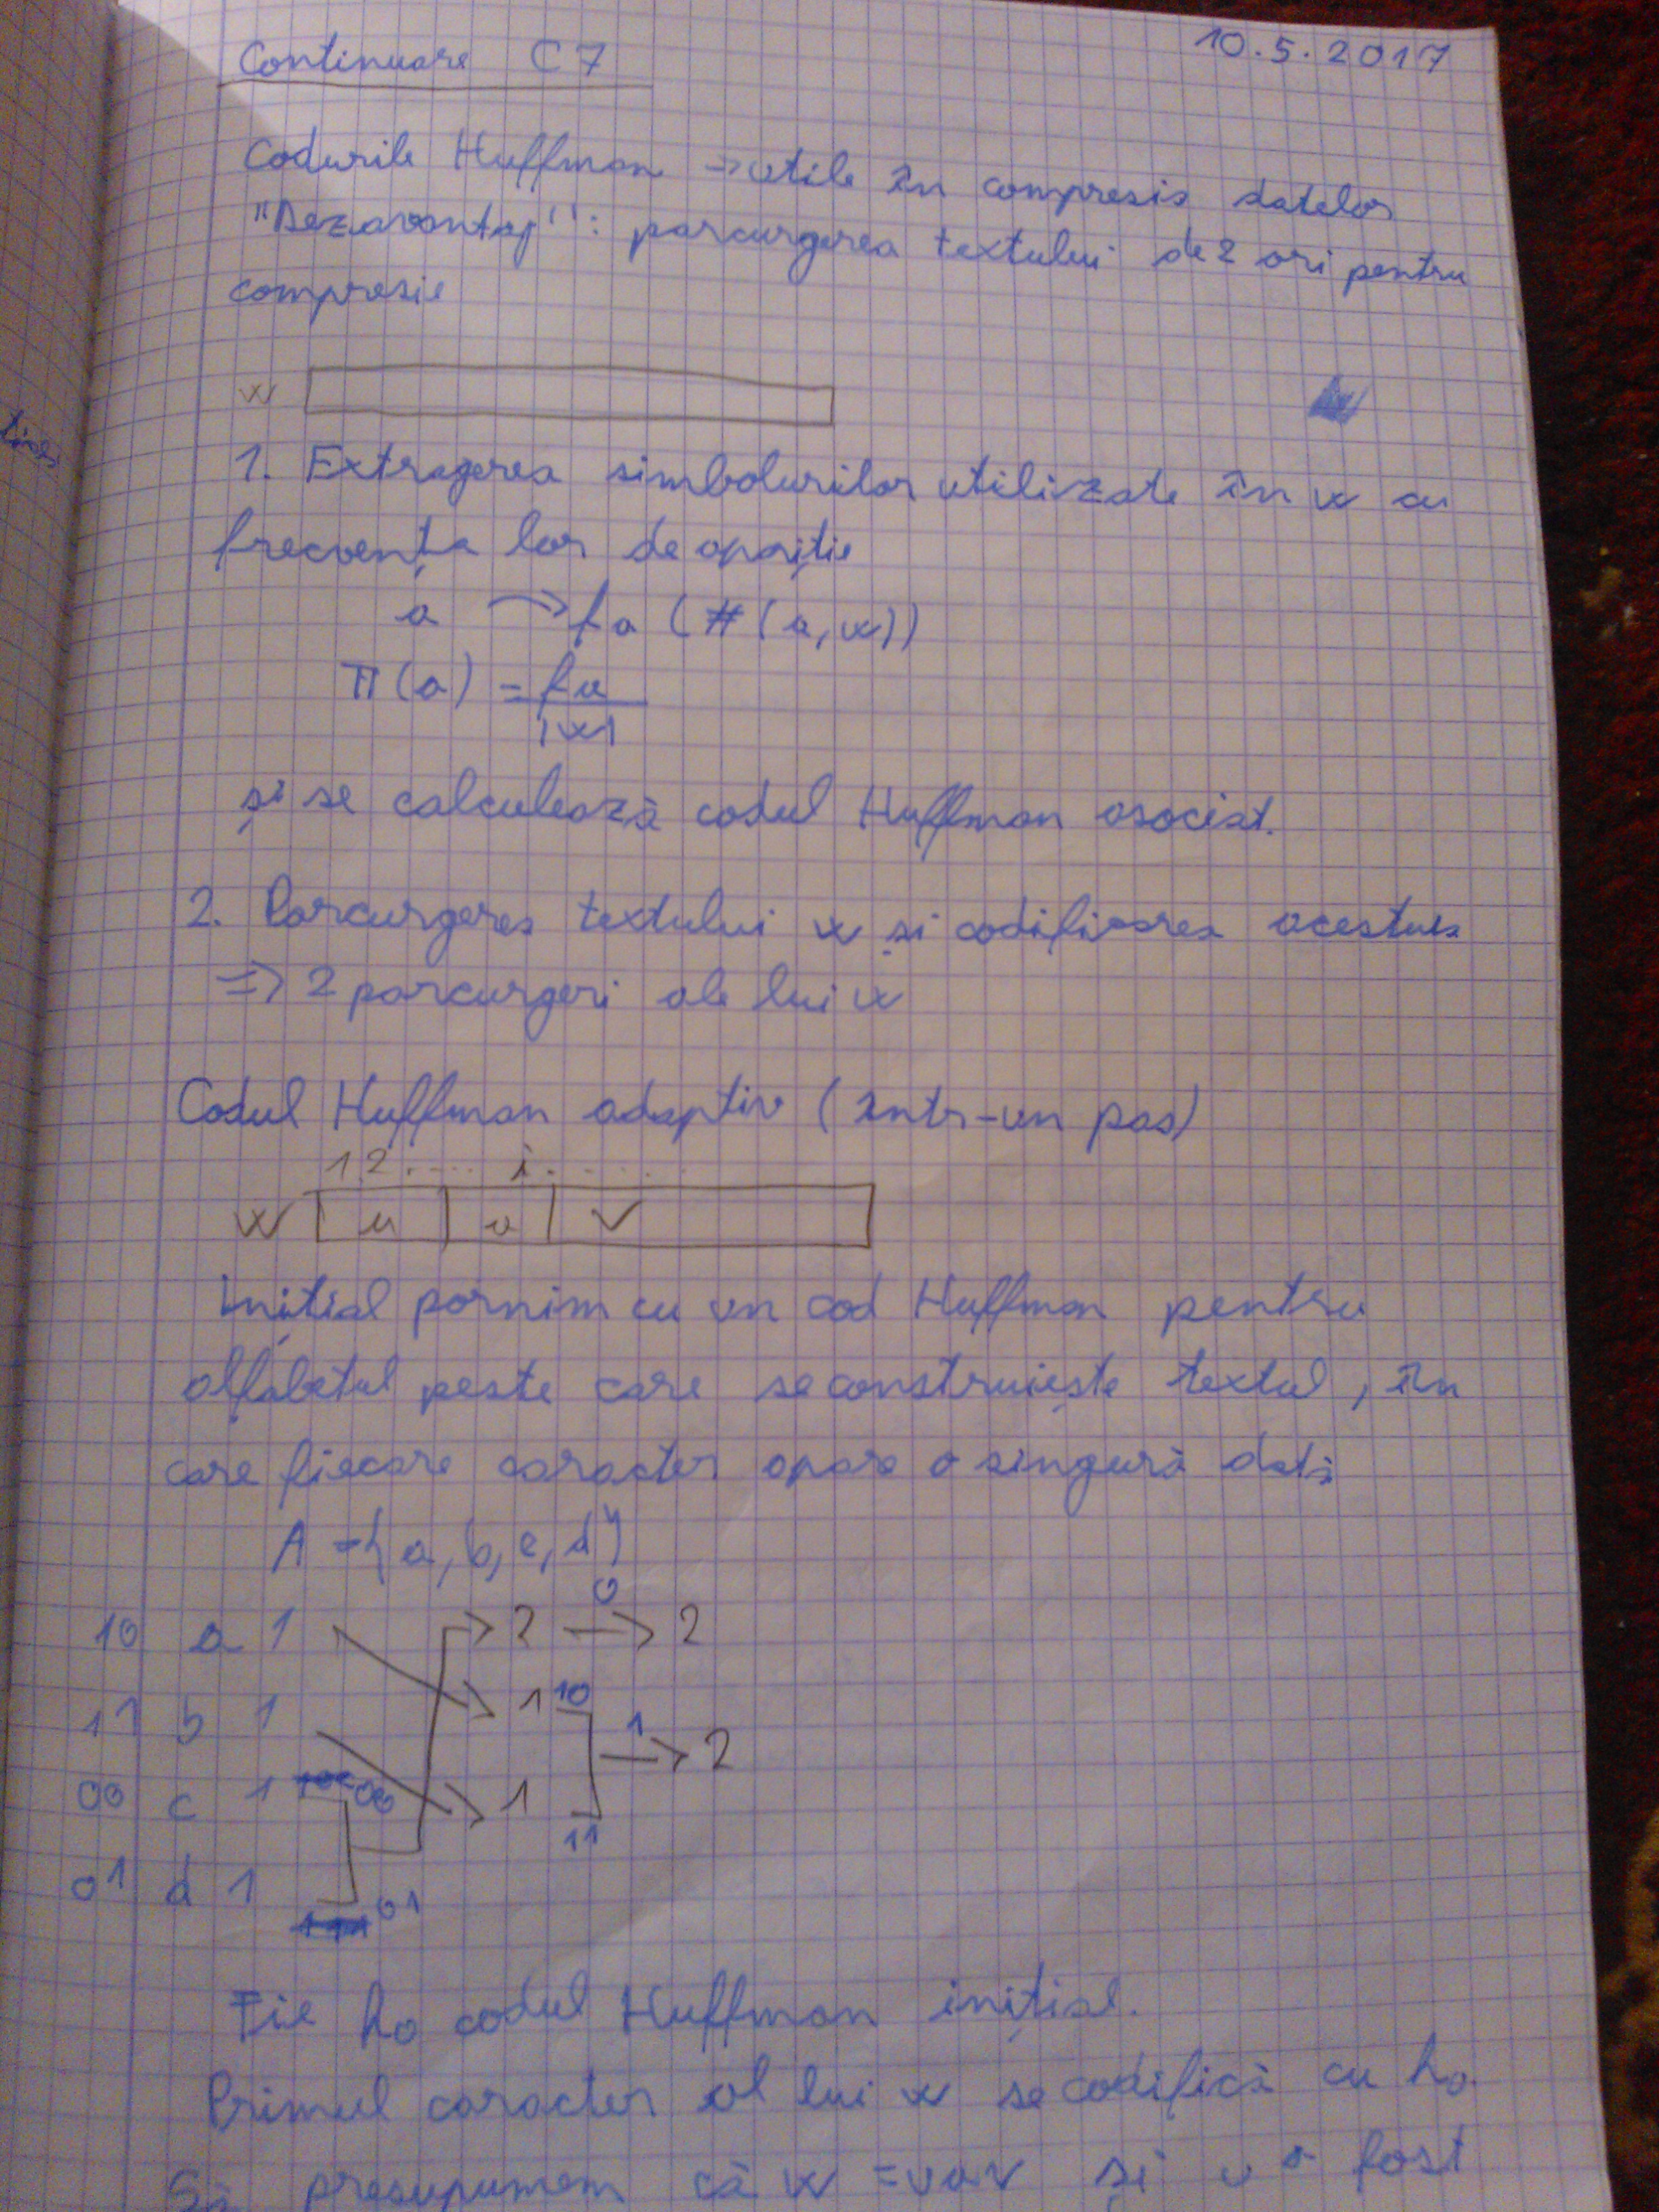 Continuare C7
10.5.2017
Codurile Huffman → utile în compresia datelor
"Dezavantaj": parcurgerea textului de 2 ori pentru
compresie
w
1. Extragerea simbolurilor utilizate în w cu
frecvența lor de apariție
a → fa (#(a,w))
π(a) = fa
|w|
și se calculează codul Huffman asociat.
2. Parcurgerea textului w și codificarea acestuia
=> 2 parcurgeri ale lui w
Codul Huffman adaptiv (într-un pas)
1 2 .... i ......
w u a v
Inițial pornim cu un cod Huffman pentru
alfabetul peste care se construiește textul, în
care fiecare caracter apare o singură dată
A = {a, b, c, d}
0
10 a 1 → 2 → 2
11 b 1 → 1 10 1 → 2
00 c 1 00 → 1 11
01 d 1 01
Fie h0 codul Huffman inițial.
Primul caracter al lui w se codifică cu h0.
Să presupunem că w = uav și u a fost